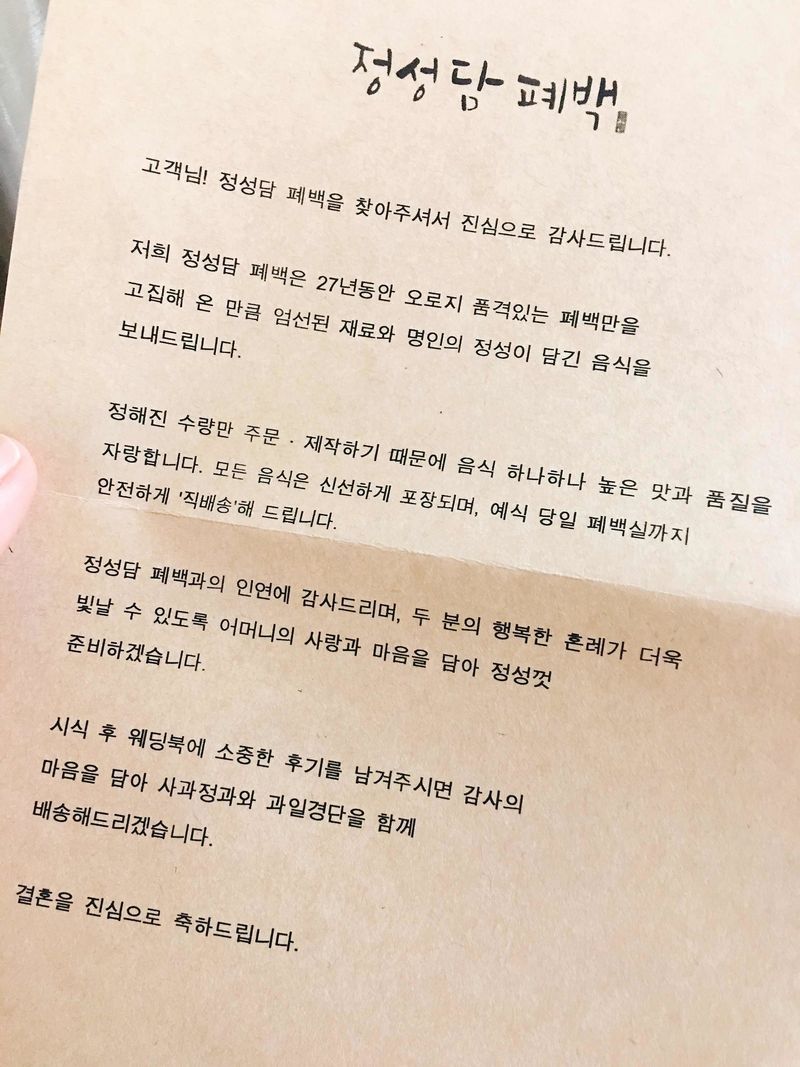 정성담 폐백
고객님! 정성담 폐백을 찾아주셔서 진심으로 감사드립니다.
저희 정성담 폐백은 27년동안 오로지 품격있는 폐백만을
고집해 온 만큼 엄선된 재료와 명인의 정성이 담긴 음식을
보내드립니다.
정해진 수량만 주문 · 제작하기 때문에 음식 하나하나 높은 맛과 품질을
자랑합니다. 모든 음식은 신선하게 포장되며, 예식 당일 폐백실까지
안전하게 '직배송'해 드립니다.
정성담 폐백과의 인연에 감사드리며, 두 분의 행복한 혼례가 더욱
빛날 수 있도록 어머니의 사랑과 마음을 담아 정성껏
준비하겠습니다.
시식 후 웨딩북에 소중한 후기를 남겨주시면 감사의
마음을 담아 사과정과와 과일경단을 함께
배송해드리겠습니다.
결혼을 진심으로 축하드립니다.